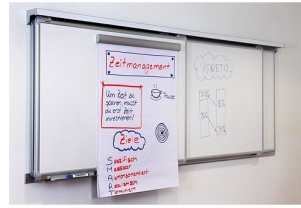 Zeitmanagement
Um Zeit zu
sparen, musst
du erst Zeit
investieren!
Pause
Ziele
Spezifisch
Messbar
Realistisch
Terminiert
PARETO